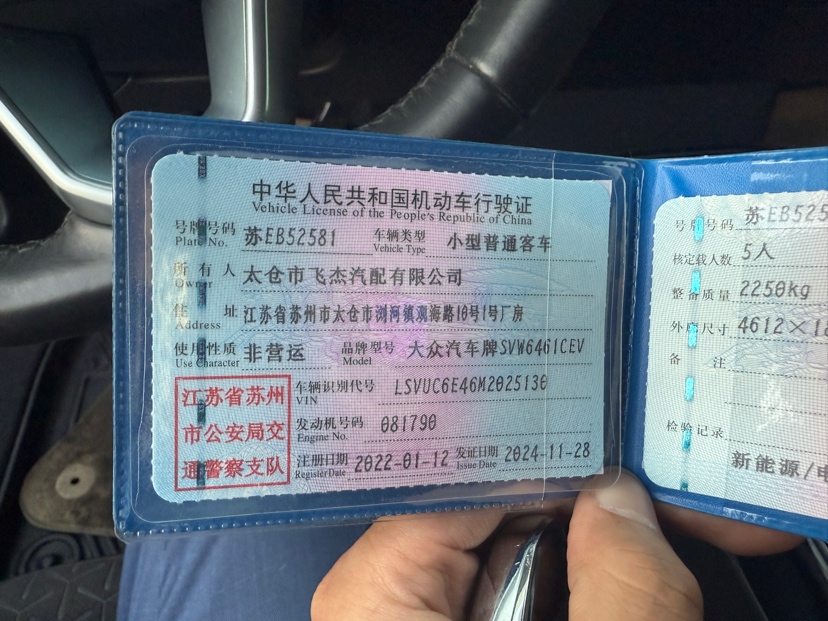 中华人民共和国机动车行驶证
Vehicle License of the People's Republic of China
号牌号码 苏EB52581 车辆类型 小型普通客车
Plate No. Vehicle Type
所有人 太仓市飞杰汽配有限公司
Owner
住址 江苏省苏州市太仓市浏河镇观海路10号1号厂房
Address
使用性质 非营运 品牌型号 大众汽车牌SVW6461CEV
Use Character Model
江苏省苏州
市公安局交
通警察支队
车辆识别代号 LSVUC6E46M2025130
VIN
发动机号码 081790
Engine No.
注册日期 2022-01-12 发证日期 2024-11-28
Register Date Issue Date
号牌号码 苏EB525
核定载人数 5人
整备质量 2250kg
外廓尺寸 4612×18
备注
检验记录
新能源/电